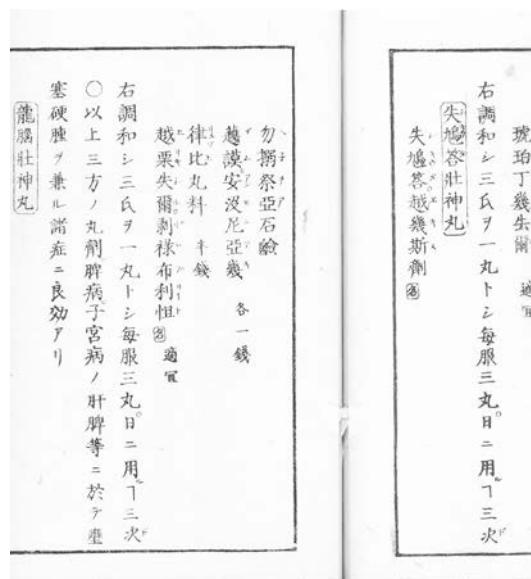 琥珀丁幾失爾 適宜
右調和シ三氏ヲ一丸トシ毎服三丸日ニ用ルヿ三次
失鳩答壯神丸
失鳩答越幾斯劑
勿搦祭亞石鹼
越謨安没尼亞幾 各一錢
律比丸料 半錢
越栗失爾剥祿布利怛 適宜
右調和シ三氏ヲ一丸トシ毎服三丸日ニ用ルヿ三次
〇以上三方ノ丸劑脾病子宮病ノ肝脾等ニ於テ壅
塞硬腫ヲ兼ル諸症ニ良効アリ
龍腦壯神丸